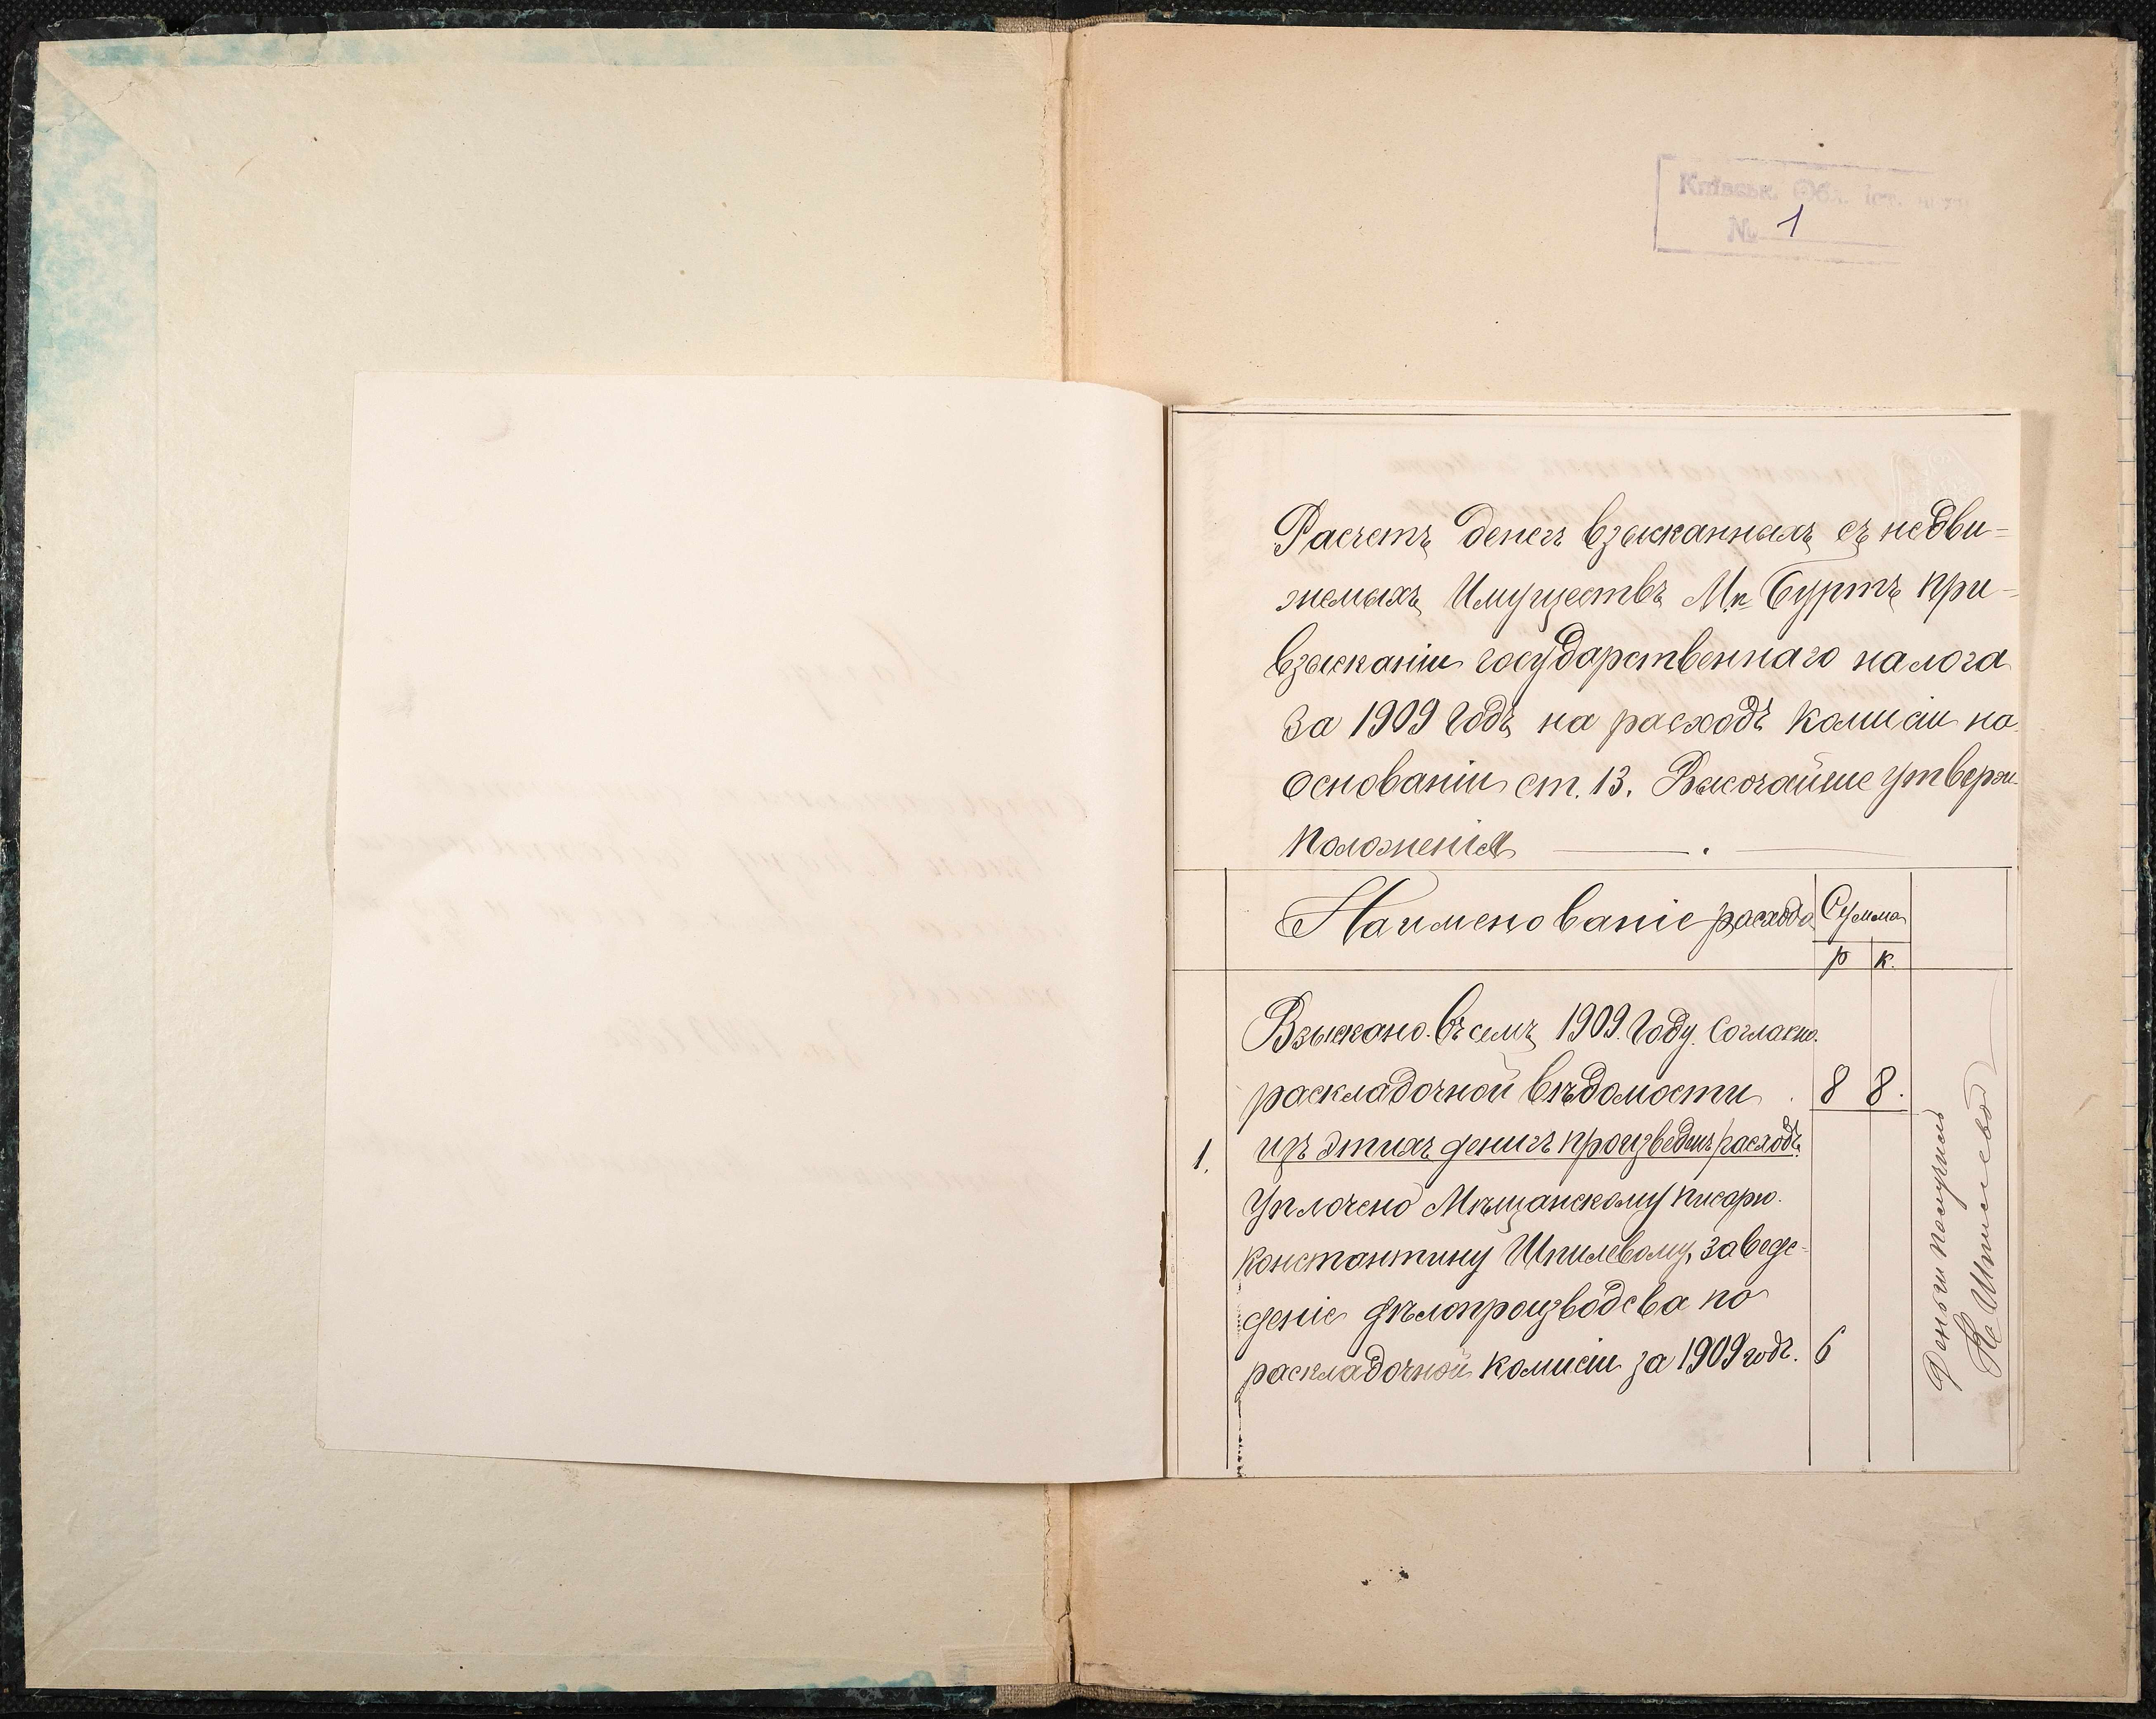 Київськ. Обл. іст. арх.
№ 1
Расчетъ денегъ взысканныхъ съ недви=
жемыхъ Имуществъ М.к Буртъ при=
взысканіи государственнаго налога
За 1909 годъ на расходъ Комисіи на
основаніи ст. 13. Высочайше утверж.
положенія
Наименованіе расхода Сумма
р к.
Взыскано въ семъ 1909. году. Согласно.
раскладочной вѣдомости 8 8.
1. изъ этихъ денигъ произведенъ расходъ.
Уплочено Мѣщанскому писарю.
Константину Шпилевому, за веде=
деніе дѣлопроизводсва по
раскладочной комисіи за 1909 годъ. 6
Деньги получилъ
К Шпилевой